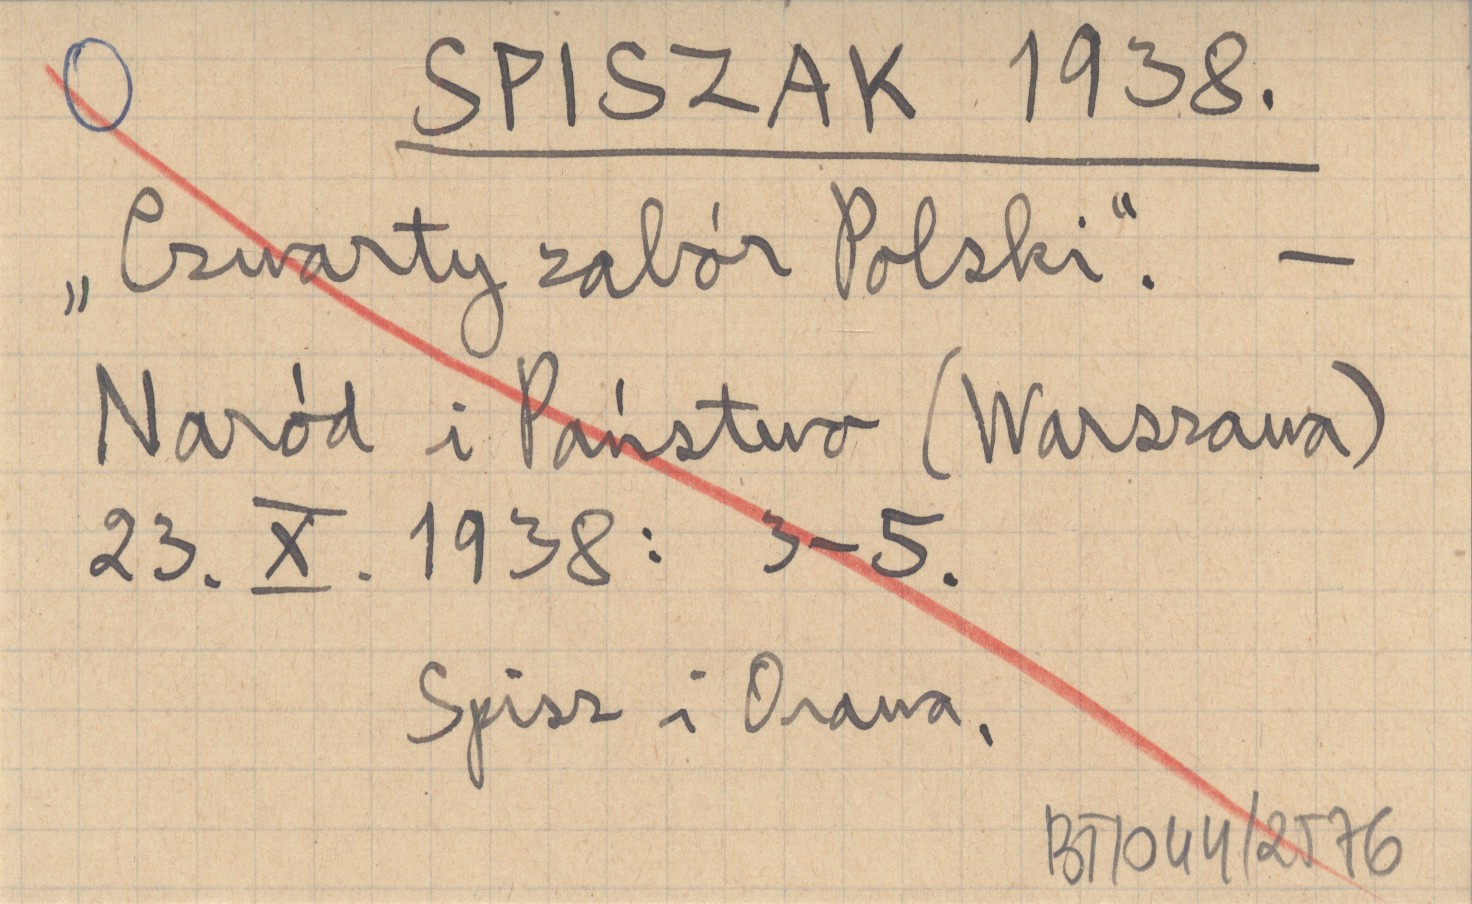 SPISZAK 1938.
„Czwarty zabór Polski“. —
Naród i Państwo (Warszawa)
23. X. 1938: 3-5.
Spisz i Orawa.
BT/044/2576